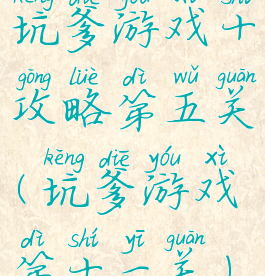 kēng diē yóu xì shí
坑爹游戏十
gōng lüè dì wǔ guān
攻略第五关
kēng diē yóu xì
(坑爹游戏
dì shí yī guān
第十一关)